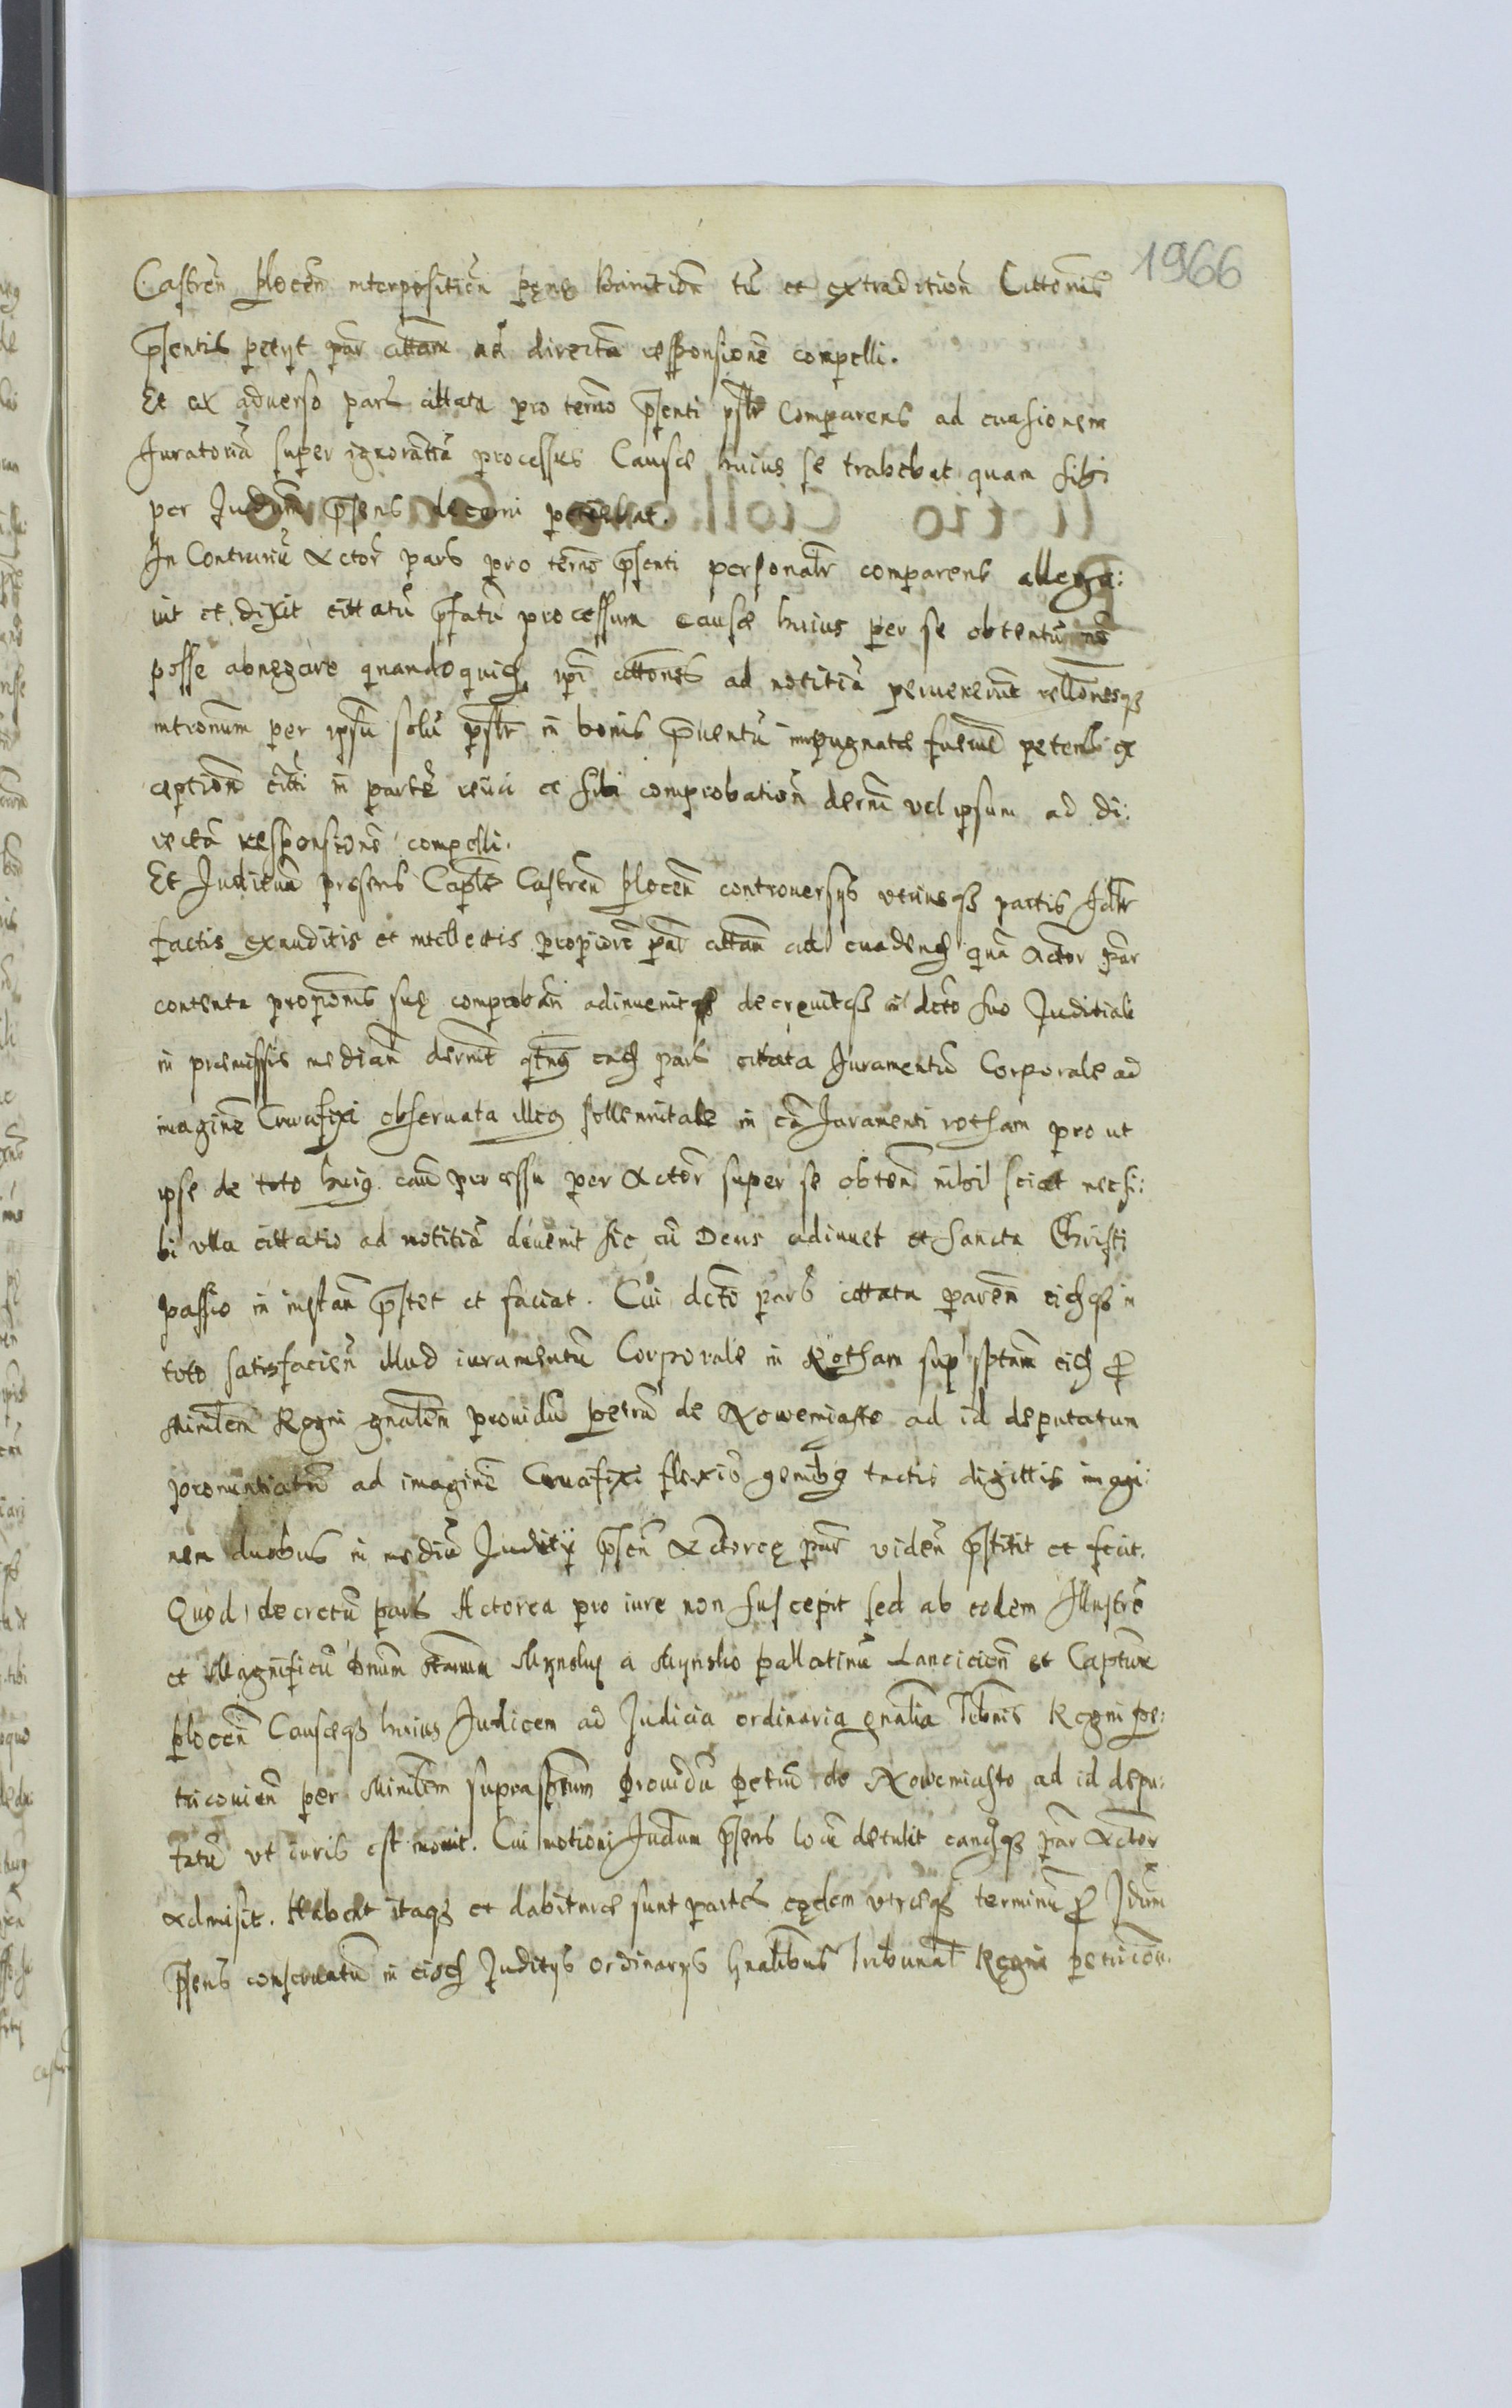 1966
Castren̄ plocen̄ interposition̄ penę Bannition̄ tū et extradition̄ Cittōnis
p̄sentis petyt par̄ cittam̄ ad directā responsionē compelli.
Et ex aduerso pars cittata pro termō p̄senti p̄slr Comparens ad euasionem
Juratoriā super ignorantiā processus Causæ huius se trahebat quam sibi
per Judm̄ p̄sens decerni petebat.
In Contrariū Actor̄ pars pro termō p̄senti personalr̄ comparens allega:
uit et dixit cittatū p̄fatū processum causæ huius per se obtentū nō
posse abnegare quandoquid̄ ip̄i cittōnes ad notitiā peruenerunt rellōnesq̨
intronum per ipsū solū p̄slr in bonis p̄uentū impugnatæ fuerunt petens ex
ception̄ citti in partē reiici et sibi comprobation̄ dernī vel ipsum ad di:
rectā responsionē compelli.
Et Juditium presens Caple Castren̄ plocen̄ controuersys vtriusq̨ partis Jdlr
factis exauditis et intellectis propiorē par̄ cittam̄ ad euadend̄ quā Actor̄ par̄
contenta propōnis suę comproban̄ adinuenit decreuitq̨ et dctō suo Juditiali
in præmissis median̄ dernit qt̄nꝰ ead̄ pars cittata Juramentū Corporale ad
imaginē Crucifixi obseruata illius sollennitate in eā Juramenti rotham prout
ipse de toto huiꝰ caū processu per Actorē super se obten̄ nihil sciat nec si:
bi vlla cittatio ad notitiā deuenit sic eū Deus adiuuet et sancta Christi
passio in instan̄ p̄stet et faciat. Cui dctō pars cittata paren̄ eidq̨ in
toto satisfacien̄ illud iuramentū Corporale in Rotham sup̄sptam eid̄ ꝑ
Minrlem Regni gnalem prouidū petrū de Nowemiasto ad id deputatum
pronuntiatū ad imaginē Crucifixi flexis genibꝰ tactis digittis imagi:
nem duobus in mediū Judity p̄sen̄ Actoreę par̄ viden̄ p̄stitit et fecit.
Quod decretū pars Actorea pro iure non suscepit sed ab eodem Illustrē
et Magnificū Dnūm Stanum Mynsky a Mynsko pallatinū Lancicien̄ et Captum
plocen̄ Causæq̨ huius Judicem ad Judicia ordinaria gnalia Tribnlis Regni pe:
tricouien̄ per Minrlem suprasptum prouidū petrū de Nowemiasto ad id depu:
tatū vt iuris est mouit. Cui motioni Judum p̄sens locū detulit eandq̨ par̄ Actor̄
admisit. Habent itaq̨ et habituræ sunt partes eędem vtræq̨ terminū ꝑ Jdum
p̄sens conseruatū in eisd̄ Juditys ordinarys gnalibus Tribunal Regni petricou.